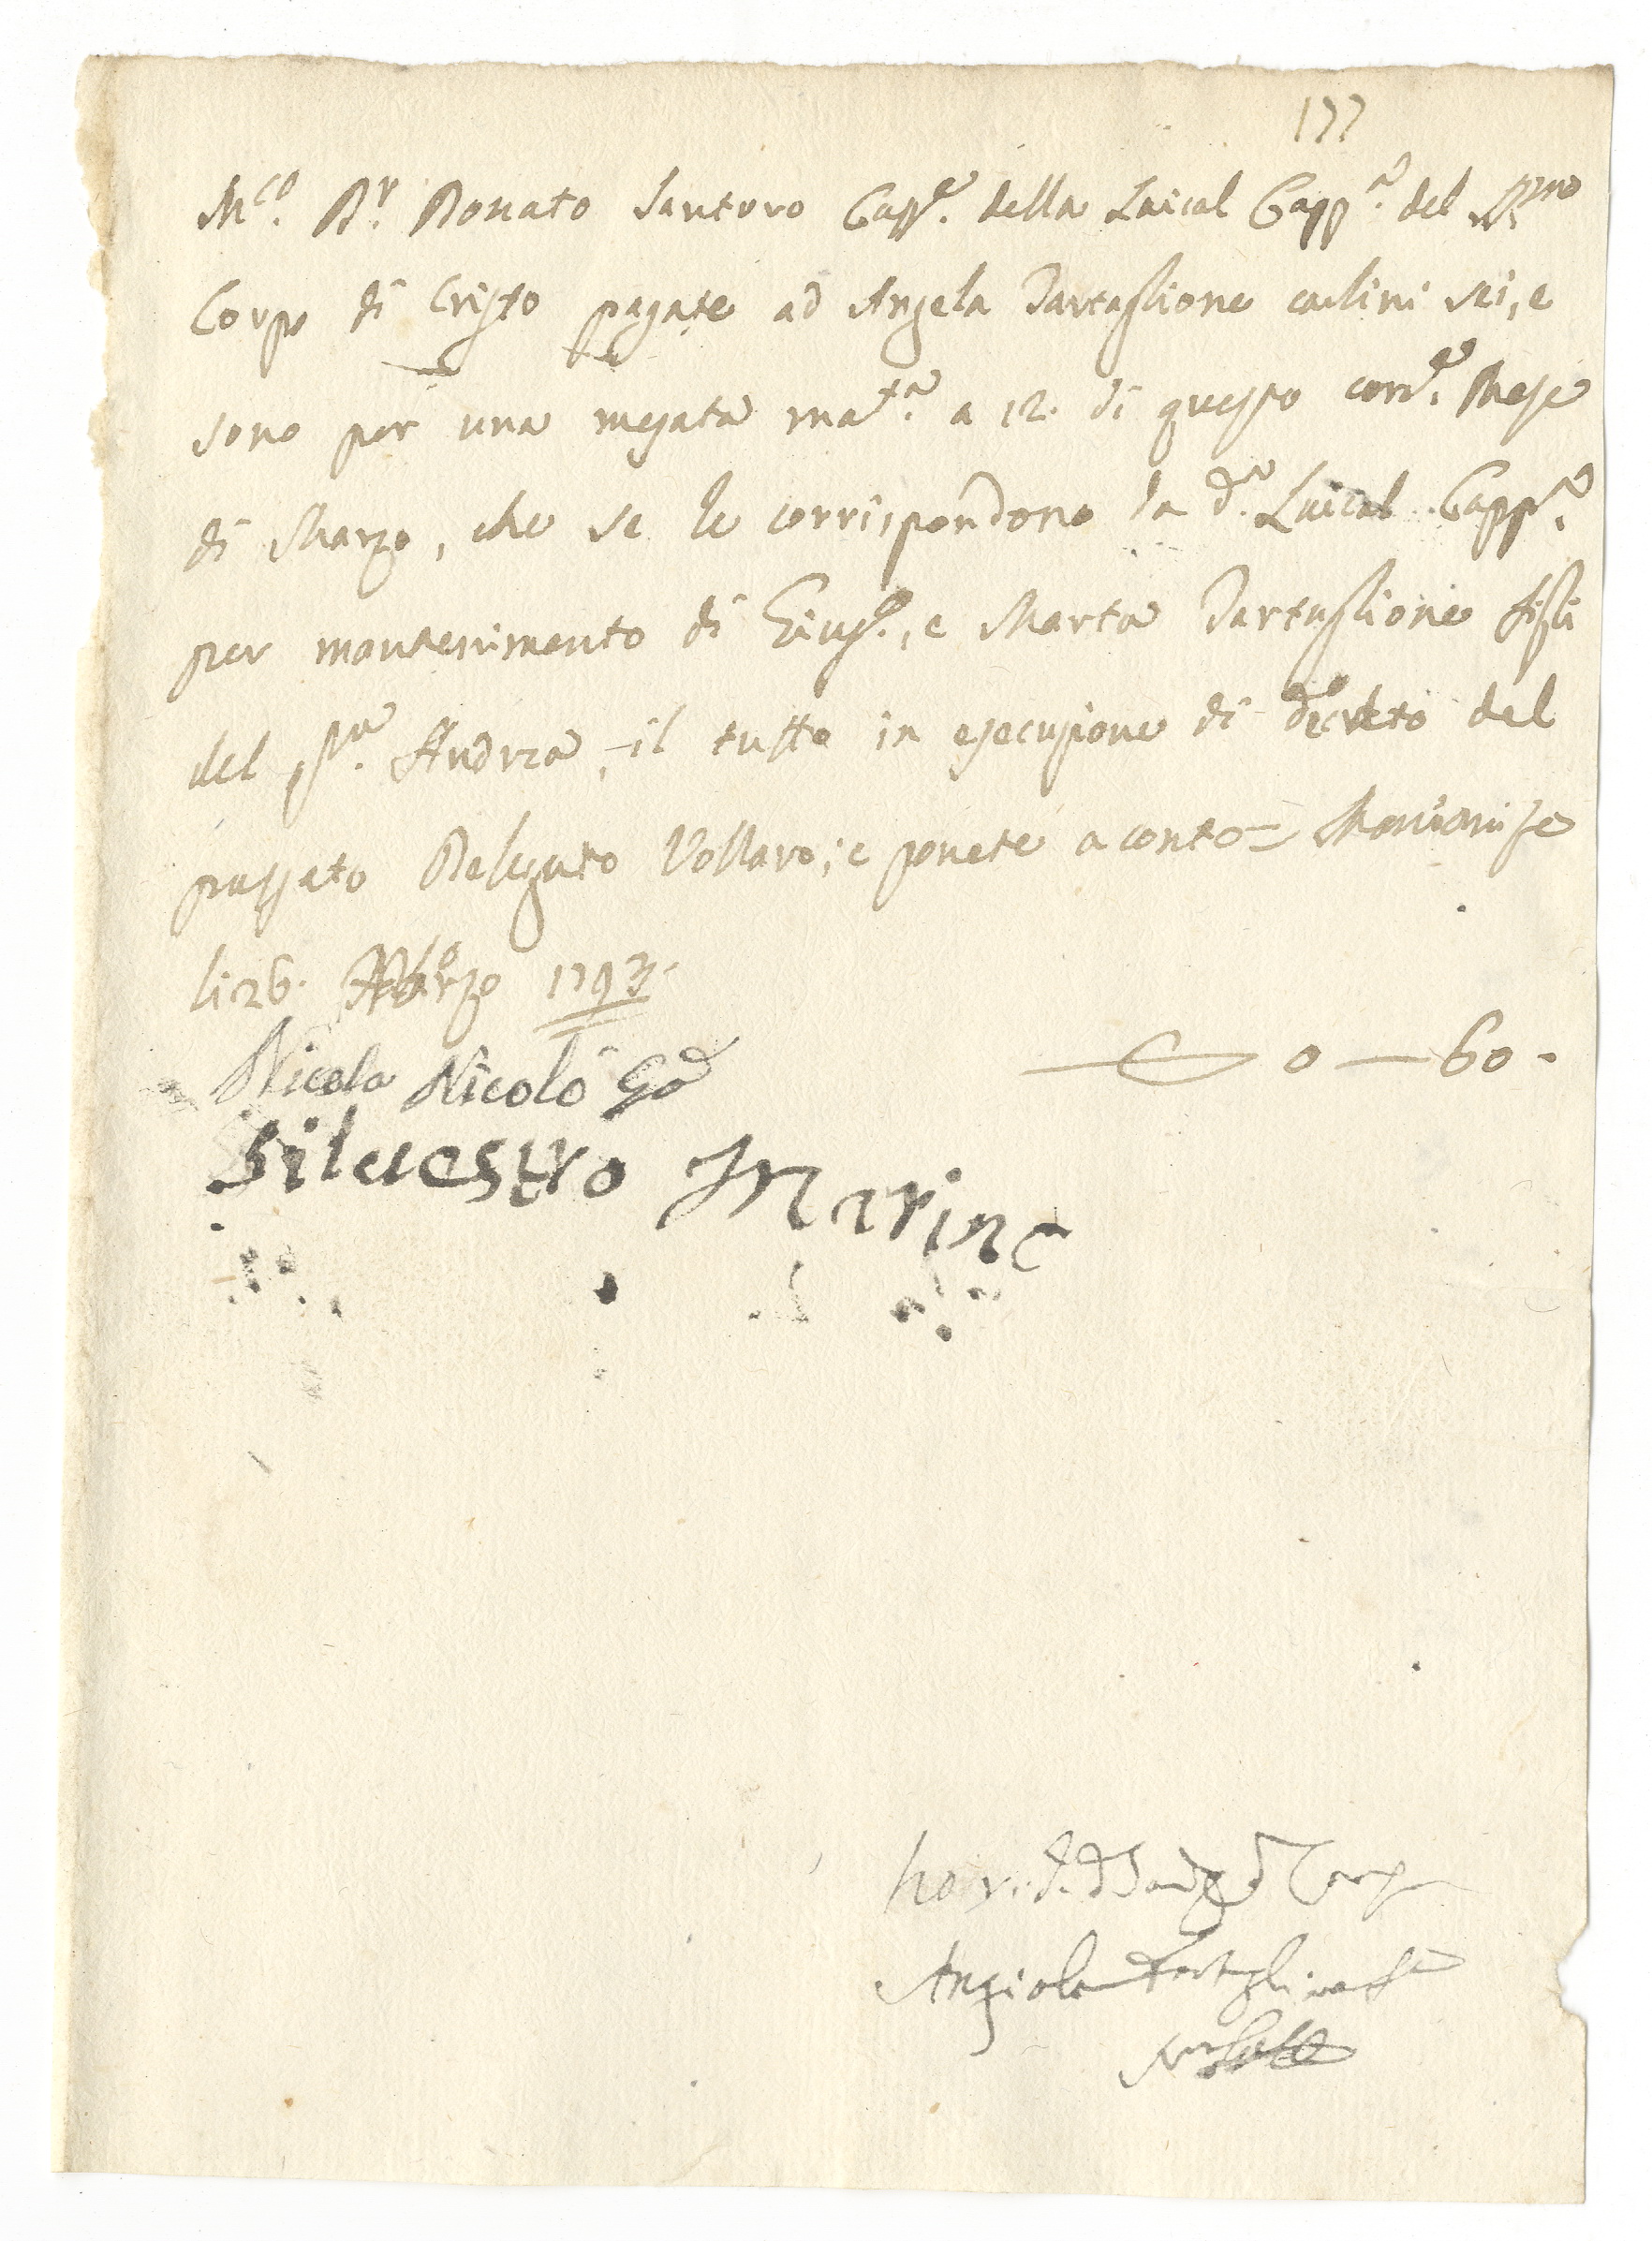 177
M.co D.r Donato Santoro Capp.e della Laical Capp.a del SS.mo
Corpo di Cristo pagate ad Angela Tartaglione carlini sei, e
sono per una mesata mat.a a 12. di questo corr.e Mese
di Marzo, che se le corrispondono da d.a Laical Capp.a
per mantenimento di Gius.e, e Marta Tartaglione figli
del q.m Andrea, il tutto in esecuzione di decreto del
passato Delegato Vollaro; e ponete a conto = Marcianise
li 26. Marzo 1793.
— 0 — 60.
Nicola Nicolò
Silvestro Marino
Angiola Tartaglione